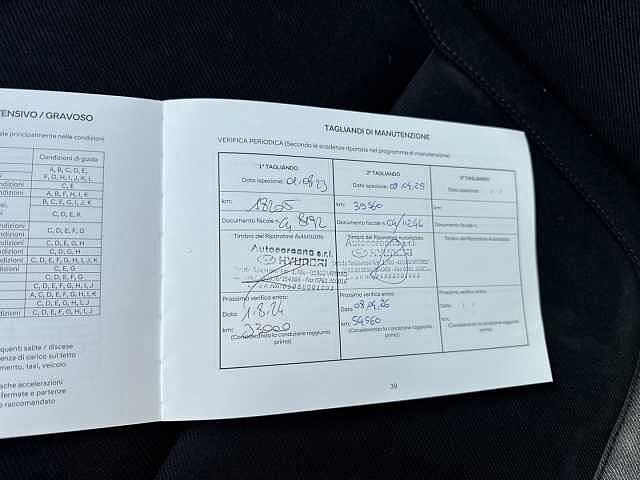 ENSIVO / GRAVOSO
ate principalmente nelle condizioni
Condizioni di guida
A, B, C, D, E,
F, G, H, I, J, K, L
ndizioni C, E
ndizioni A, B, F, H, I, K
B, C, E, G, I, J, K
C, D, E, K
ndizioni
ndizioni C, D, E, F, G
ndizioni C, D, E, G, H
ndizioni C, D, G, H
ndizioni C, D, E, F, G, H, I, J, K
ndizioni C, E, G
C, D, E, F, G
C, D, E, F, G, H, I, J
A, C, D, E, F, G, H, I, K
C, D, E, F, G, H, I, J
ndizioni C, D, E, F, G, H, I, J
equenti salite / discese
enza di carico sul tetto
mento, taxi, veicolo
ache accelerazioni
fermate e partenze
o raccomandato
TAGLIANDI DI MANUTENZIONE
VERIFICA PERIODICA (Secondo le scadenze riportate nel programma di manutenzione)
1° TAGLIANDO
Data ispezione: 01.08.23
km: 18205
Documento fiscale n. 8192
Timbro del Riparatore Autorizzato
Autocorsano s.r.l.
HYUNDAI
Prossima verifica entro:
Data: 1.8.24
km: 33000
(Considerando la condizione raggiunta
prima)
2° TAGLIANDO
Data ispezione: 08.04.25
km: 39560
Documento fiscale n.
Timbro del Riparatore Autorizzato
Autocorsano s.r.l.
HYUNDAI
Prossima verifica entro:
Data: 08.04.26
km: 54560
(Considerando la condizione raggiunta
prima)
3° TAGLIANDO
Data ispezione: / /
km:
Documento fiscale n.
Timbro del Riparatore Autorizzato
Prossima verifica entro:
Data: / /
km:
(Considerando la condizione raggiunta
prima)
39